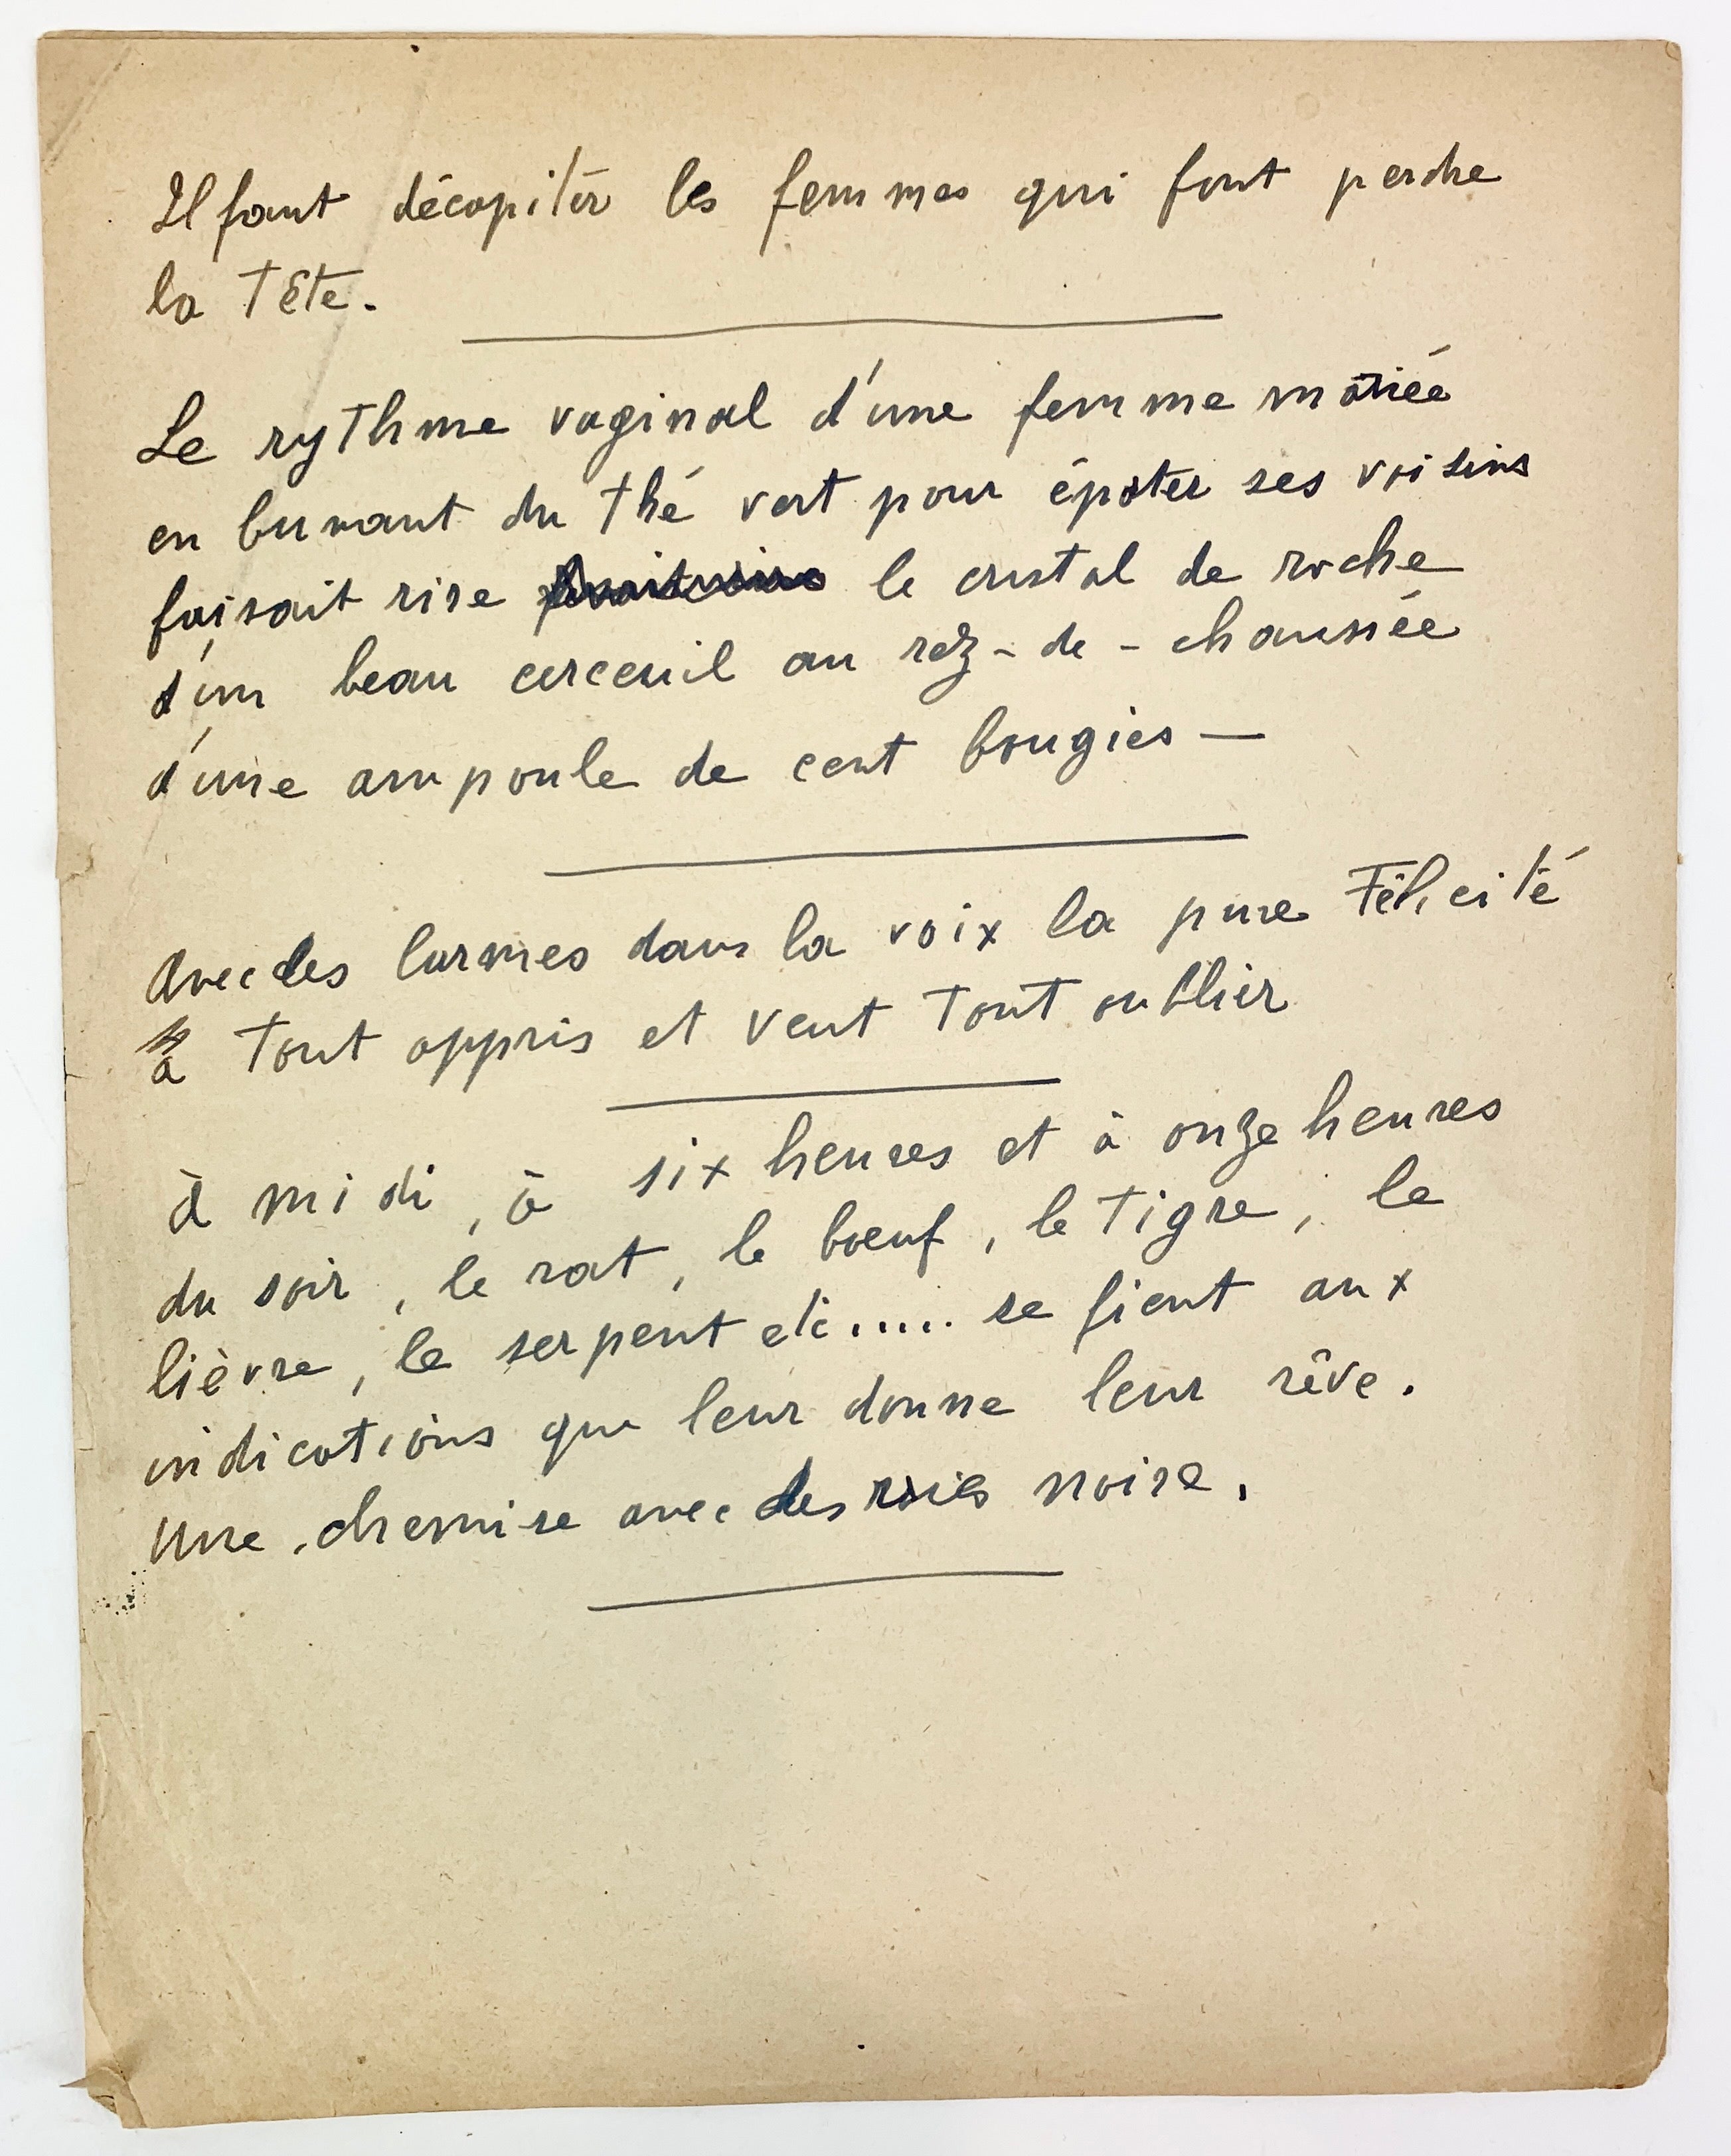 Il faut décapiter les femmes qui font perdre
la Tête.
Le rythme vaginal d'une femme mariée
en buvant du thé vert pour épater ses voisins
faisait rire le cristal de roche
d'un beau cerceuil au rez-de-chaussée
d'une ampoule de cent bougies —
Avec des larmes dans la voix la pure Félicité
a tout appris et veut tout oublier
à midi, à six heures et à onze heures
du soir, le rat, le bœuf, le tigre, le
lièvre, le serpent etc ..... se fient aux
indications que leur donne leur rêve.
Une chemise avec des noire.